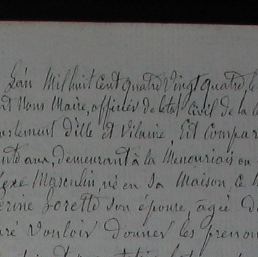 L'an Mil huit cent quatre vingt quatre, le
Nous Maire, officier de l'état civil de la
d'Ille et Vilaine, Est compar
ans, demeurant à la
sexe Masculin, né en sa Maison, ce
Lorette son épouse, agée de
vouloir donner les prenom